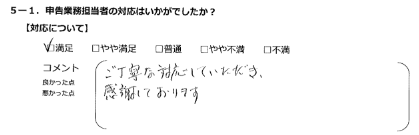 5－1．申告業務担当者の対応はいかがでしたか？
【対応について】
☑満足 □やや満足 □普通 □やや不満 □不満
コメント
良かった点
悪かった点
ご丁寧な対応していただき、
感謝しております